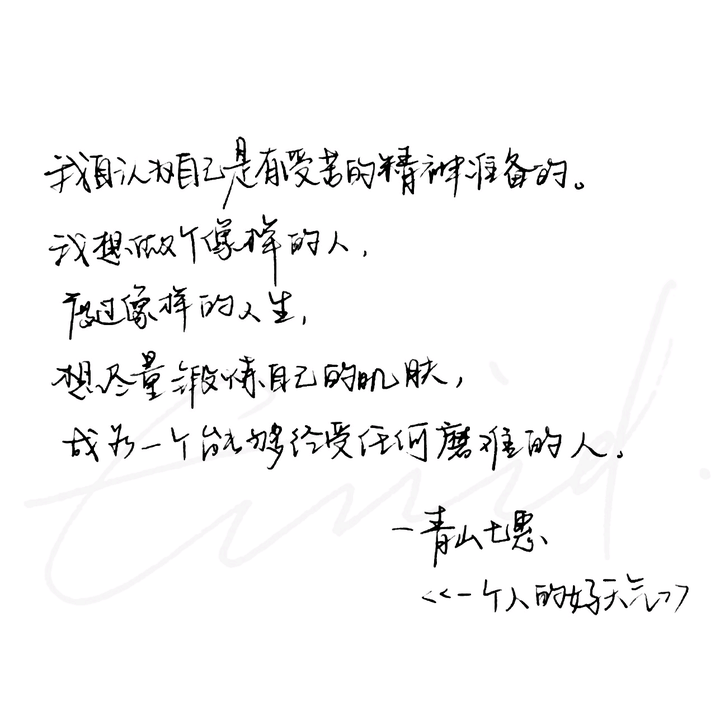 我自认为自己是有受苦的精神准备的。
我想做个像样的人，
度过像样的人生，
想尽量锻炼自己的肌肤，
成为一个能够经受任何磨难的人。
一青山七恵
<<一个人的好天气>>